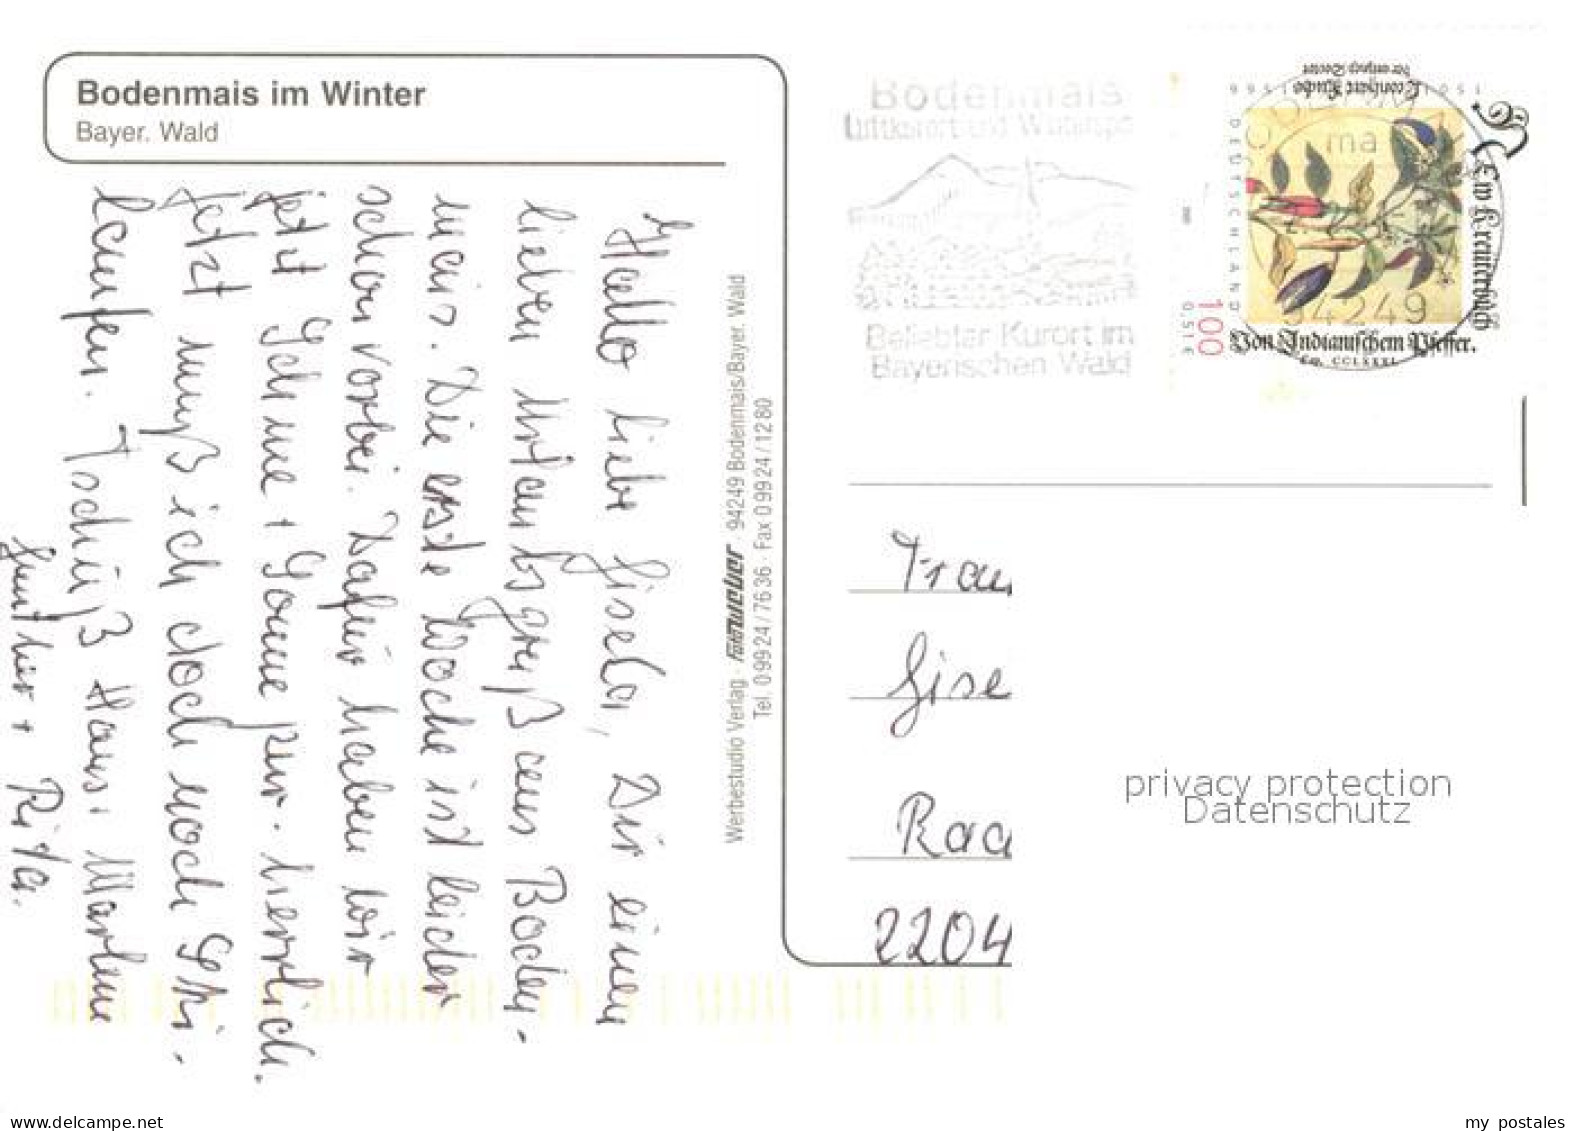 Bodenmais im Winter
Bayer. Wald
Hallo liebe Gisela, Dir einen
lieben Urlaubsgruß aus Boden-
mais. Die erste Woche ist leider
schon vorbei. Dafür haben wir
jetzt Schnee + Sonne pur. herrlich.
Jetzt muß ich doch noch Ski-
laufen. Tschüß Hans, Marlene
Günther + Rita.
Werbestudio Verlag · foto weber · 94249 Bodenmais/Bayer. Wald
Tel. 0 99 24 / 76 36 · Fax 0 99 24 / 12 80
Bodenmais
Luftkurort und Wintersp
Beliebter Kurort im
Bayerischen Wald
94249
ma
DEUTSCHLAND
100
0,51€
1501 1566
Leonhart Fuchs
Ein Kreuterbuch
Von Indianischem Pfeffer.
Cap. CCLXXXI.
Frau
Gise
Raa
2204
privacy protection
Datenschutz
www.delcampe.net
my_postales